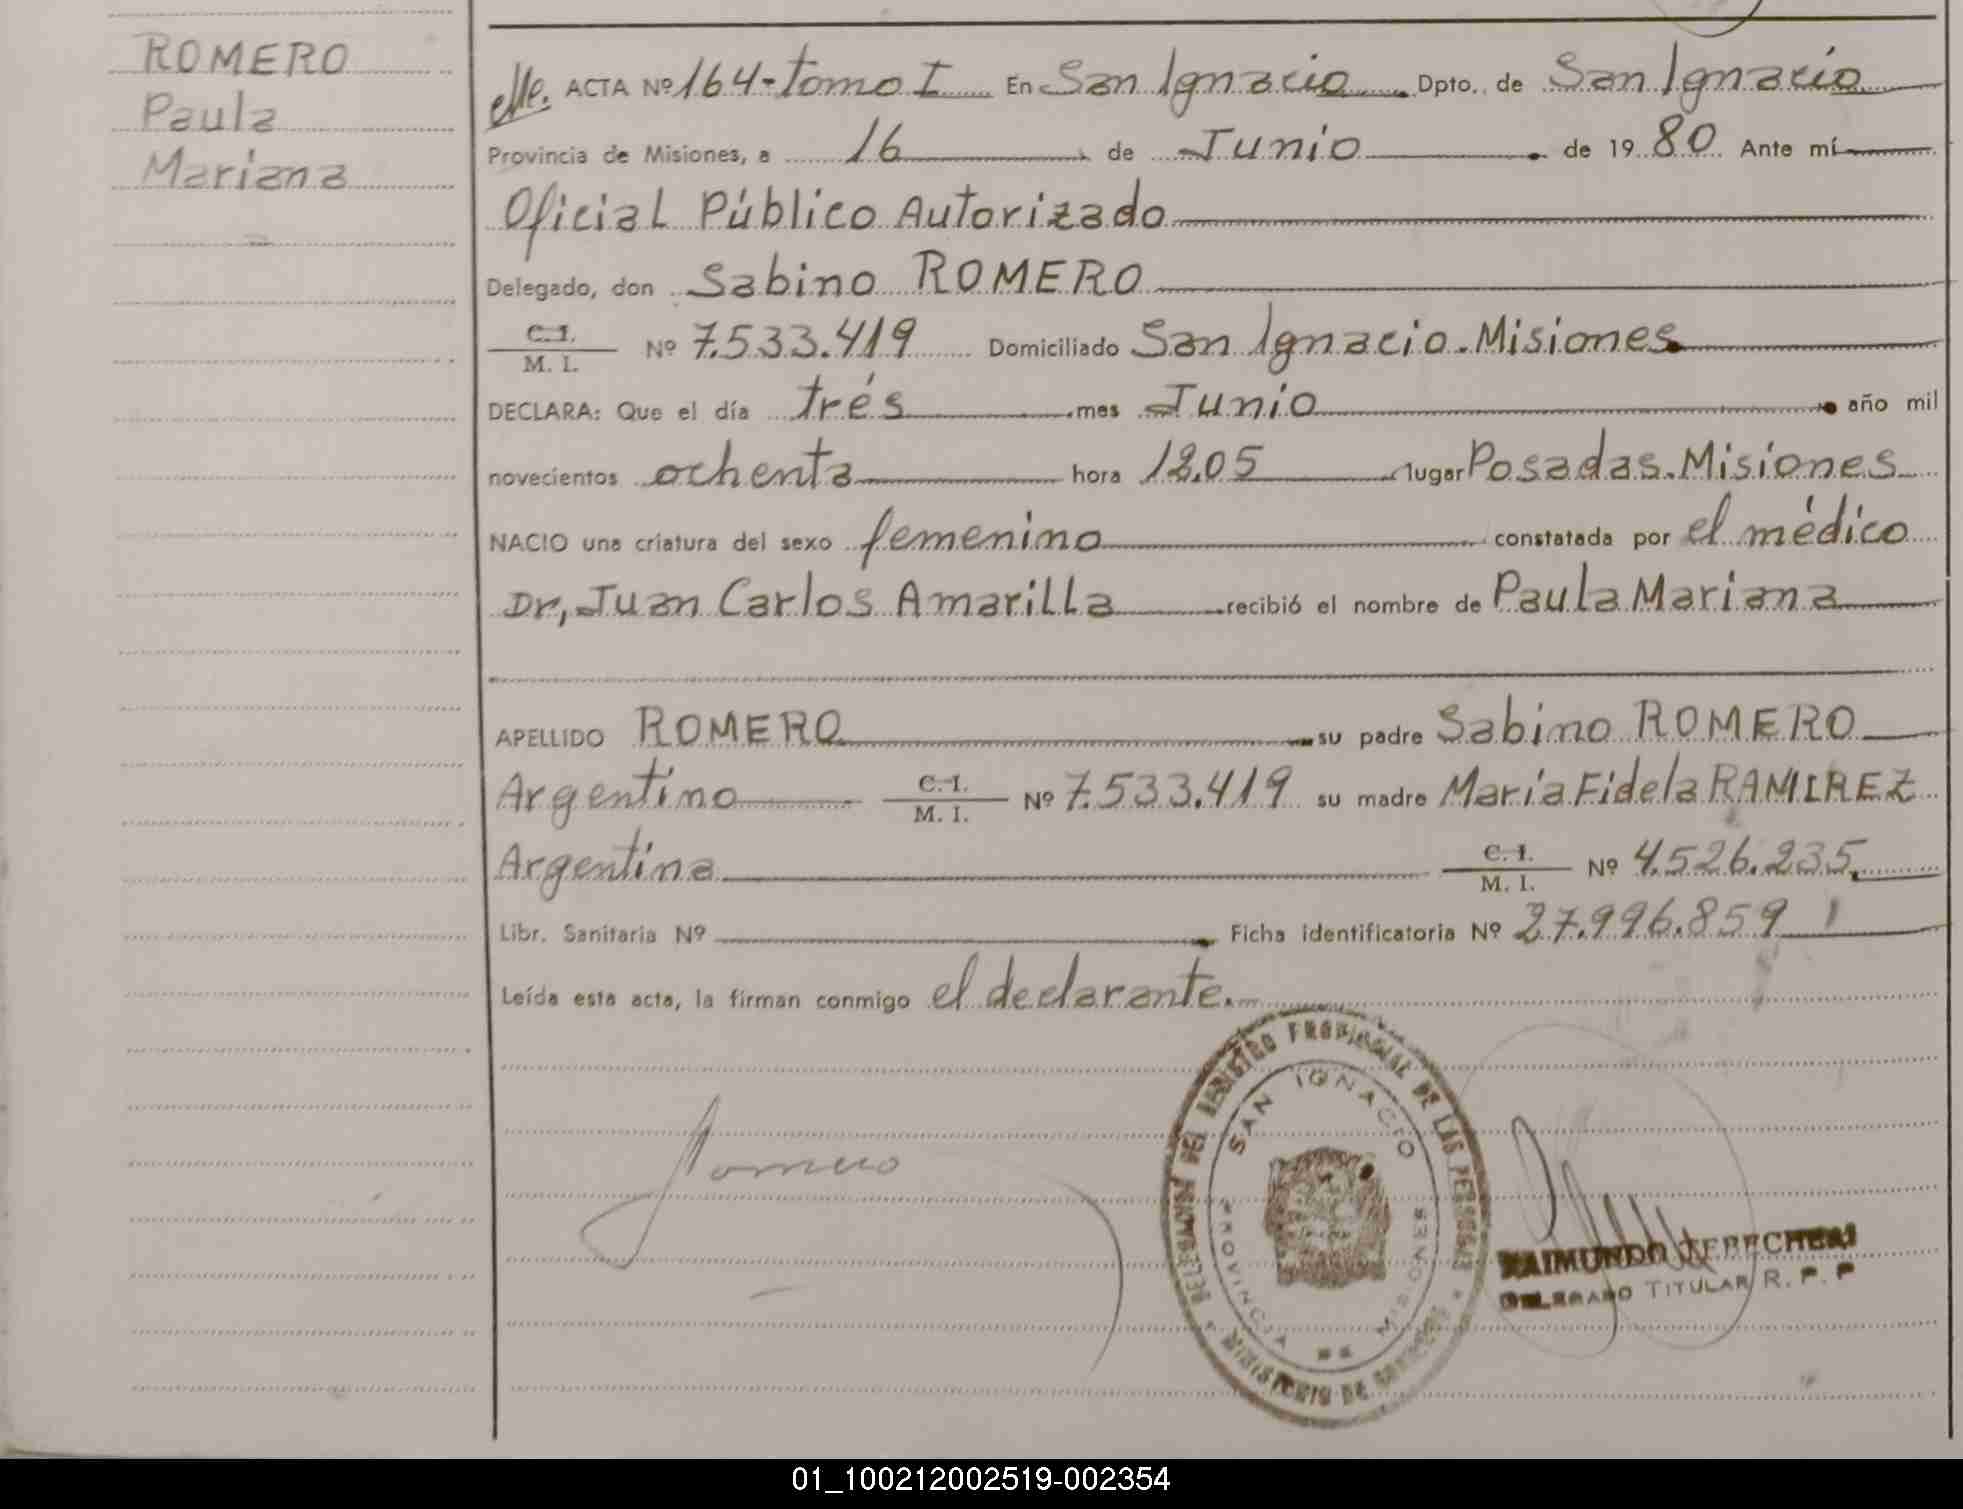 ROMERO
Paula
Mariana
ACTA Nº 164-tomo I En San Ignacio Dpto. de San Ignacio
Provincia de Misiones, a 16 de Junio de 19 80 Ante mí
Oficial Público Autorizado
Delegado, don Sabino ROMERO
C.I.
M. I. Nº 7.533.419 Domiciliado San Ignacio.Misiones
DECLARA: Que el día trés mes Junio año mil
novecientos ochenta hora lugar Posadas.Misiones
NACIO una criatura del sexo femenino constatada por el médico
Dr, Juan Carlos Amarilla recibió el nombre de Paula Mariana
APELLIDO ROMERO su padre Sabino ROMERO
Argentino C.I. M. I. Nº 7.533.419 su madre María Fidela RAMIREZ
Argentina C.I. M. I. Nº 4.526.235.
Libr. Sanitaria Nº Ficha identificatoria Nº 27.996.859
Leída esta acta, la firman conmigo el declarante.
DEL REGISTRO PROVINCIAL DE LAS PERSONAS
SAN IGNACIO
PROVINCIA MISIONES
MINISTERIO DE
Romero
RAIMUNDO
DELEGADO TITULAR R. P. P
01_100212002519-002354